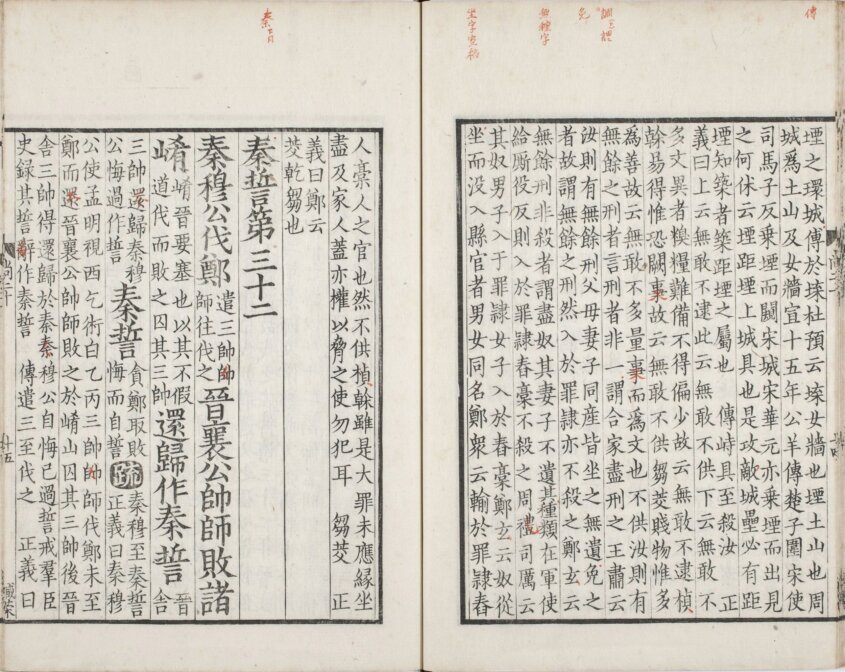 傳
免
無種字
堙之環城傅於堞杜預云堞女牆也堙土山也周
城為土山及女牆宣十五年公羊傳楚子圍宋使
司馬子反乗堙而闚宋城宋華元亦乗堙而出見
之何休云堙距堙上城具也是攻敵城壘必有距
堙知築者築距堙之屬也 傳峙具至殺汝 正
義曰上云無敢不逮此云無敢不供下云無敢不
多文異者糗糧難備不得偏少故云無敢不逮楨
榦易得惟恐闕事故云無敢不供芻茭賤物惟多
為善故云無敢不多量事而為文也不供汝則有
無餘之刑者言刑者非一謂合家盡刑之王肅云
汝則有無餘刑父母妻子同産皆坐之無遺免之
者故謂無餘之刑然入於罪隷亦不殺之鄭玄云
無餘刑非殺者謂盡奴其妻子不遺其種類在軍使
給厮役反則入於罪隷舂槀不殺之周禮司厲云
其奴男子入于罪隷女子入於舂槀鄭玄云奴從
坐而没入縣官者男女同名鄭衆云輸於罪隷舂
人槀人之官也然不供楨榦雖是大罪未應緣坐
盡及家人蓋亦權以脅之使勿犯耳 芻茭 正
義曰鄭云
茭乾芻也
秦誓第三十二
秦穆公伐鄭 遣三帥帥師往伐之 晉襄公帥師敗諸
崤 崤晉要塞也以其不假道伐而敗之囚其三帥 還歸作秦誓 晉舍
三帥還歸秦穆公悔過作誓 秦誓 貪鄭取敗悔而自誓 疏 秦穆至秦誓正義曰秦穆
公使孟明視西乞術白乙丙三帥帥師伐鄭未至
鄭而還晉襄公帥師敗之於崤山囚其三帥後晉
舍三帥得還歸於秦秦穆公自悔已過誓戒羣臣
史録其誓辭作秦誓 傳遣三至伐之 正義曰
廿五